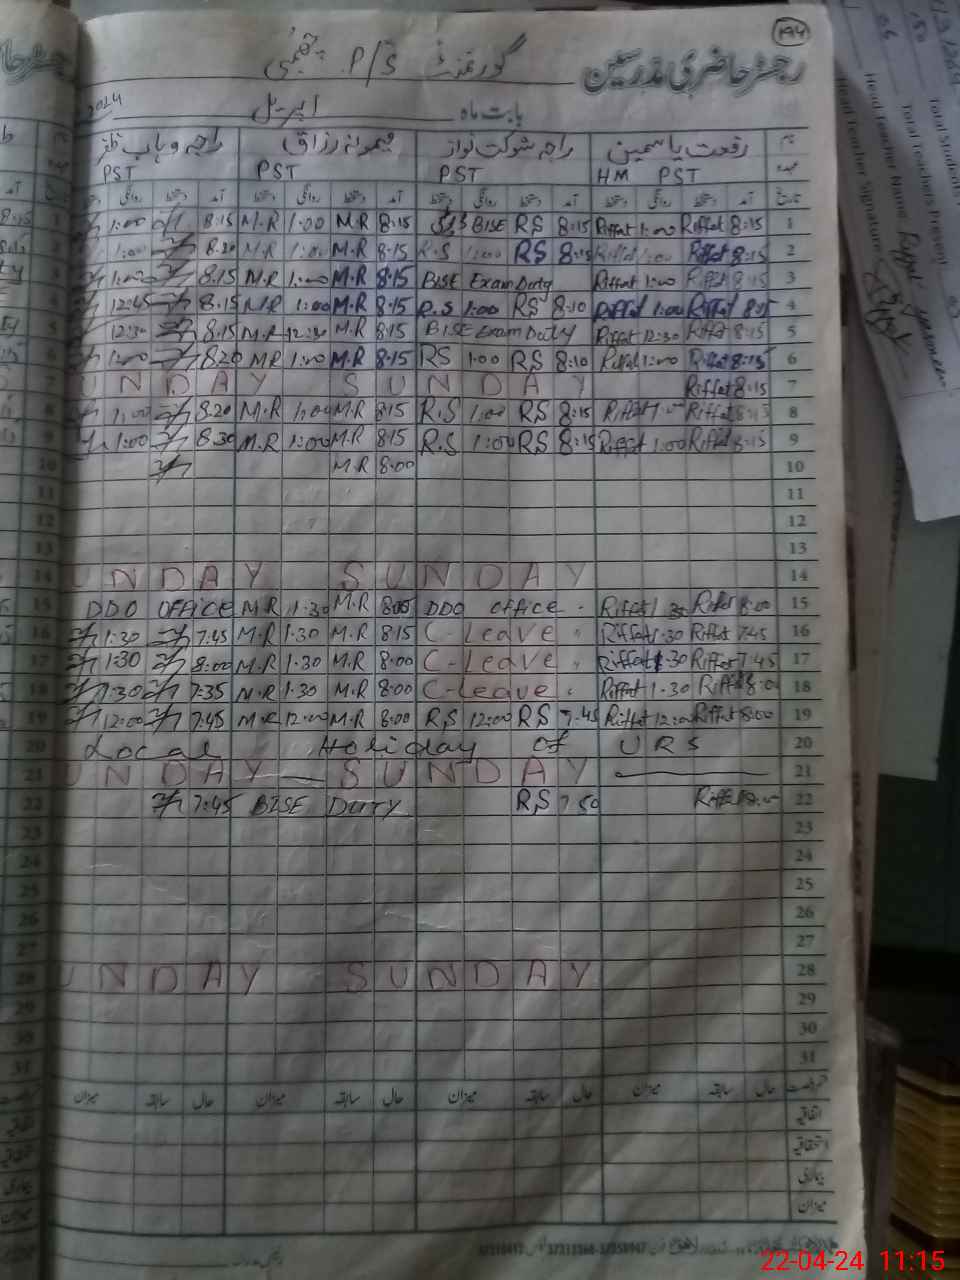 ۱۹۴
رجسٹر حاضری مدرسین گورنمنٹ P/S
بابت ماہ اپریل 2024
نام رفعت یاسمین راجہ شوکت نواز میمونہ رزاق راجہ وہاب ظفر
عہدہ HM PST PST PST PST
تاریخ آمد دستخط روانگی دستخط آمد دستخط روانگی دستخط آمد دستخط روانگی دستخط آمد دستخط روانگی دستخط
1:00 8:15 M.R 1:00 M.R 8:15 BISE RS 8:15 Riffat 1:00 Riffat 8:15 1
1:00 8.20 M.R 1:00 M.R 8:15 R.S 1:00 RS 8:15 Riffat 1:00 Riffat 8:15 2
1:00 8.15 M.R 1:00 M.R 8:15 BISE Exam Duty Riffat 1:00 Riffat 8:15 3
12:45 8:15 M.R 1:00 M.R 8:15 R.S 1:00 RS 8:10 Riffat 1:00 Riffat 8:15 4
12:30 8:15 M.R 12:30 M.R 8:15 BISE Exam Duty Riffat 12:30 Riffat 8:15 5
1:00 8.20 MR 1:00 M.R 8:15 RS 1:00 RS 8:10 Riffat 1:00 Riffat 8:15 6
UNDAY SUNDAY Riffat 8:15 7
1:00 8.20 M.R 1:00 M.R 8:15 R.S 1:00 RS 8:15 Riffat 1:00 Riffat 8:15 8
1:00 8.30 M.R 1:00 M.R 8:15 R.S 1:00 RS 8:15 Riffat 1:00 Riffat 8:15 9
M.R 8:00 10
11
12
13
UNDAY SUNDAY 14
DDO OFFICE M.R 1:30 M.R 8:05 DDO office Riffat 1:30 Riffat 8:00 15
1:30 7:45 M.R 1.30 M.R 8:15 C-Leave Riffat 1.30 Riffat 7:45 16
1:30 8:00 M.R 1.30 M.R 8:00 C-Leave Riffat 1.30 Riffat 7:45 17
1:30 7:35 M.R 1.30 M.R 8:00 C-Leave Riffat 1.30 Riffat 8:0 18
12:00 7:45 M.R 12:00 M.R 8:00 R.S 12:00 RS 7:45 Riffat 12:00 Riffat 8:00 19
Local Holiday of URS 20
UNDAY SUNDAY 21
7:45 BISE DUTY RS 7:50 Riffat 22
23
24
25
26
27
UNDAY SUNDAY 28
29
30
31
رخصت حال سابقہ میزان حال سابقہ میزان حال سابقہ میزان حال سابقہ میزان
اتفاقیہ
استحقاقیہ
بیماری
میزان
Total Student
Total Teachers Present
Head Teacher Name Riffat Yasmeen
Head Teacher Signature
22-04-24 11:15